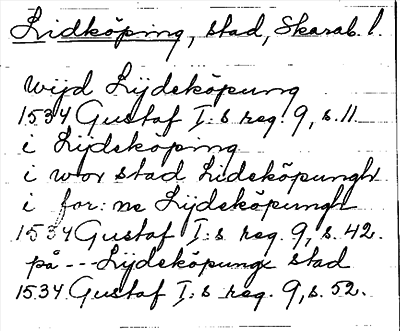 Lidköping, stad, Skarab. l.
wijd Lijdsköpung
1534 Gustaf I:s reg. 9, s. 11.
i Lijdsköping
i wor stad Lidsköpungh
i for:ne Lijdsköpungh
1534 Gustaf I:s reg. 9, s. 42.
på --- Lijdsköpunge stad
1534 Gustaf I:s reg. 9, s. 52.